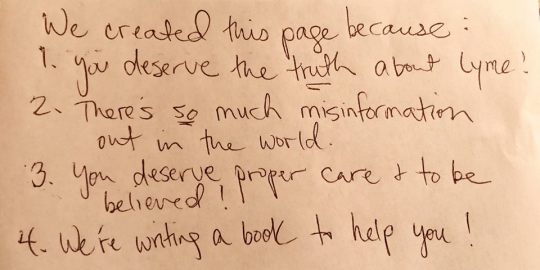 We created this page because:
1. you deserve the truth about Lyme!
2. There's so much misinformation
out in the world.
3. You deserve proper care & to be
believed!
4. We're writing a book to help you!